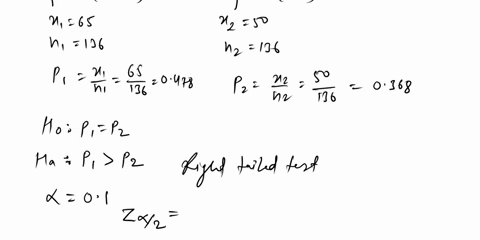 x₁ = 65 x₂ = 50
n₁ = 136 n₂ = 136
P₁ = x₁/n₁ = 65/136 = 0.478 P₂ = x₂/n₂ = 50/136 = 0.368
H₀ : P₁ = P₂
Ha : P₁ > P₂ Right tailed test
α = 0.1
Zα/2 =